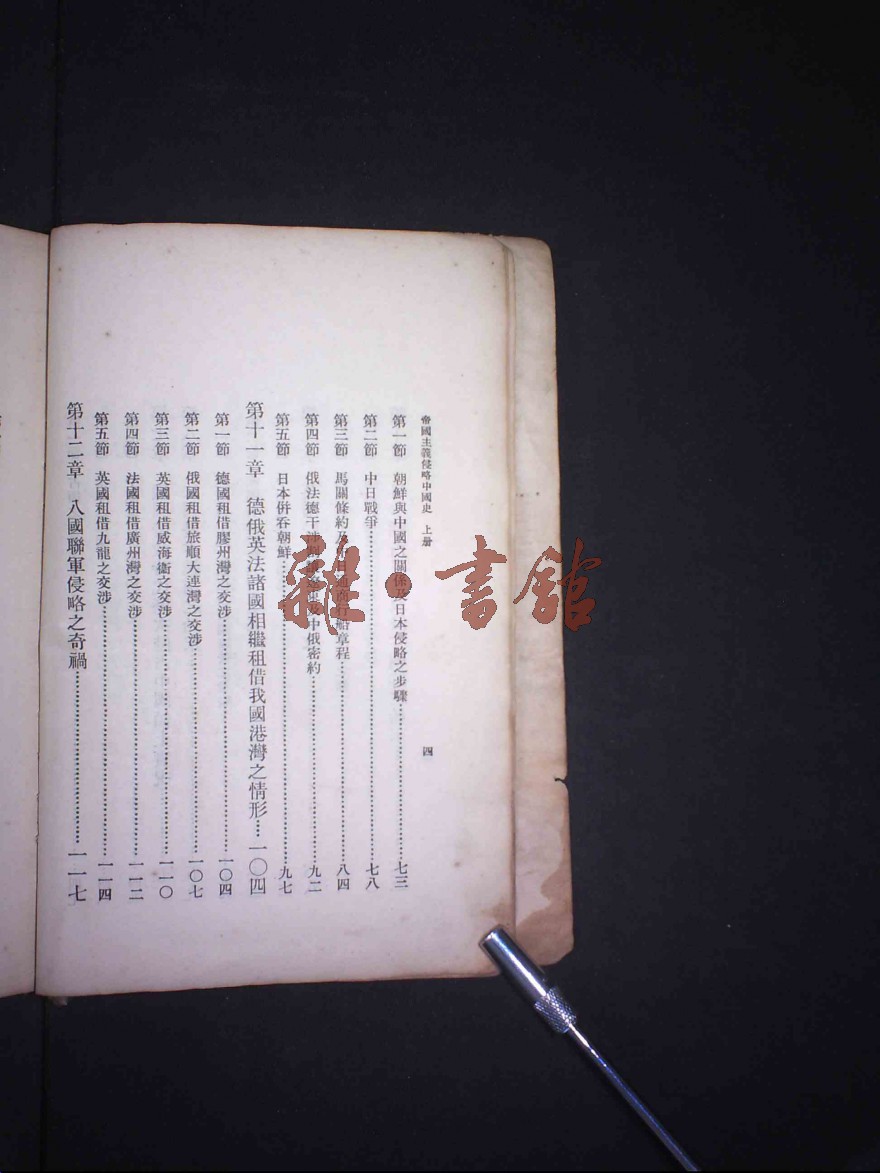 帝國主義侵略中國史　上册　四
第一節　朝鮮與中國之關係及日本侵略之步驟……七三
第二節　中日戰爭……七八
第三節　馬關條約及中日通商行船章程……八四
第四節　俄法德干涉　及中俄密約……九二
第五節　日本併吞朝鮮……九七
第十一章　德俄英法諸國相繼租借我國港灣之情形……一〇四
第一節　德國租借膠州灣之交涉……一〇四
第二節　俄國租借旅順大連灣之交涉……一〇七
第三節　英國租借威海衛之交涉……一一〇
第四節　法國租借廣州灣之交涉……一一二
第五節　英國租借九龍之交涉……一一四
第十二章　八國聯軍侵略之奇禍……一一七
雜·書館